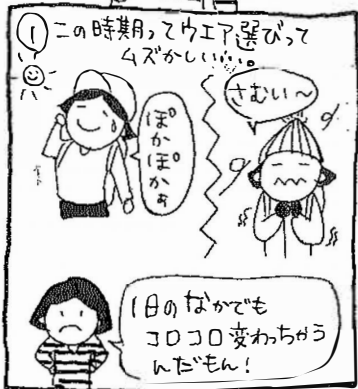 1
この時期ってウエア選びって
ムズかしい……。
ぽか
ぽか
かぁ
さむい～
1日のなかでも
コロコロ変わっちゃう
んだもん!